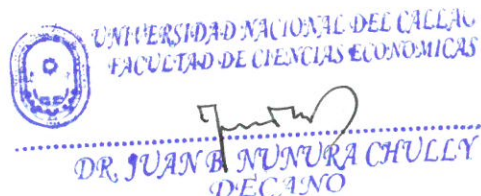 UNIVERSIDAD NACIONAL DEL CALLAO
FACULTAD DE CIENCIAS ECONOMICAS
DR. JUAN B. NUNURA CHULLY
DECANO